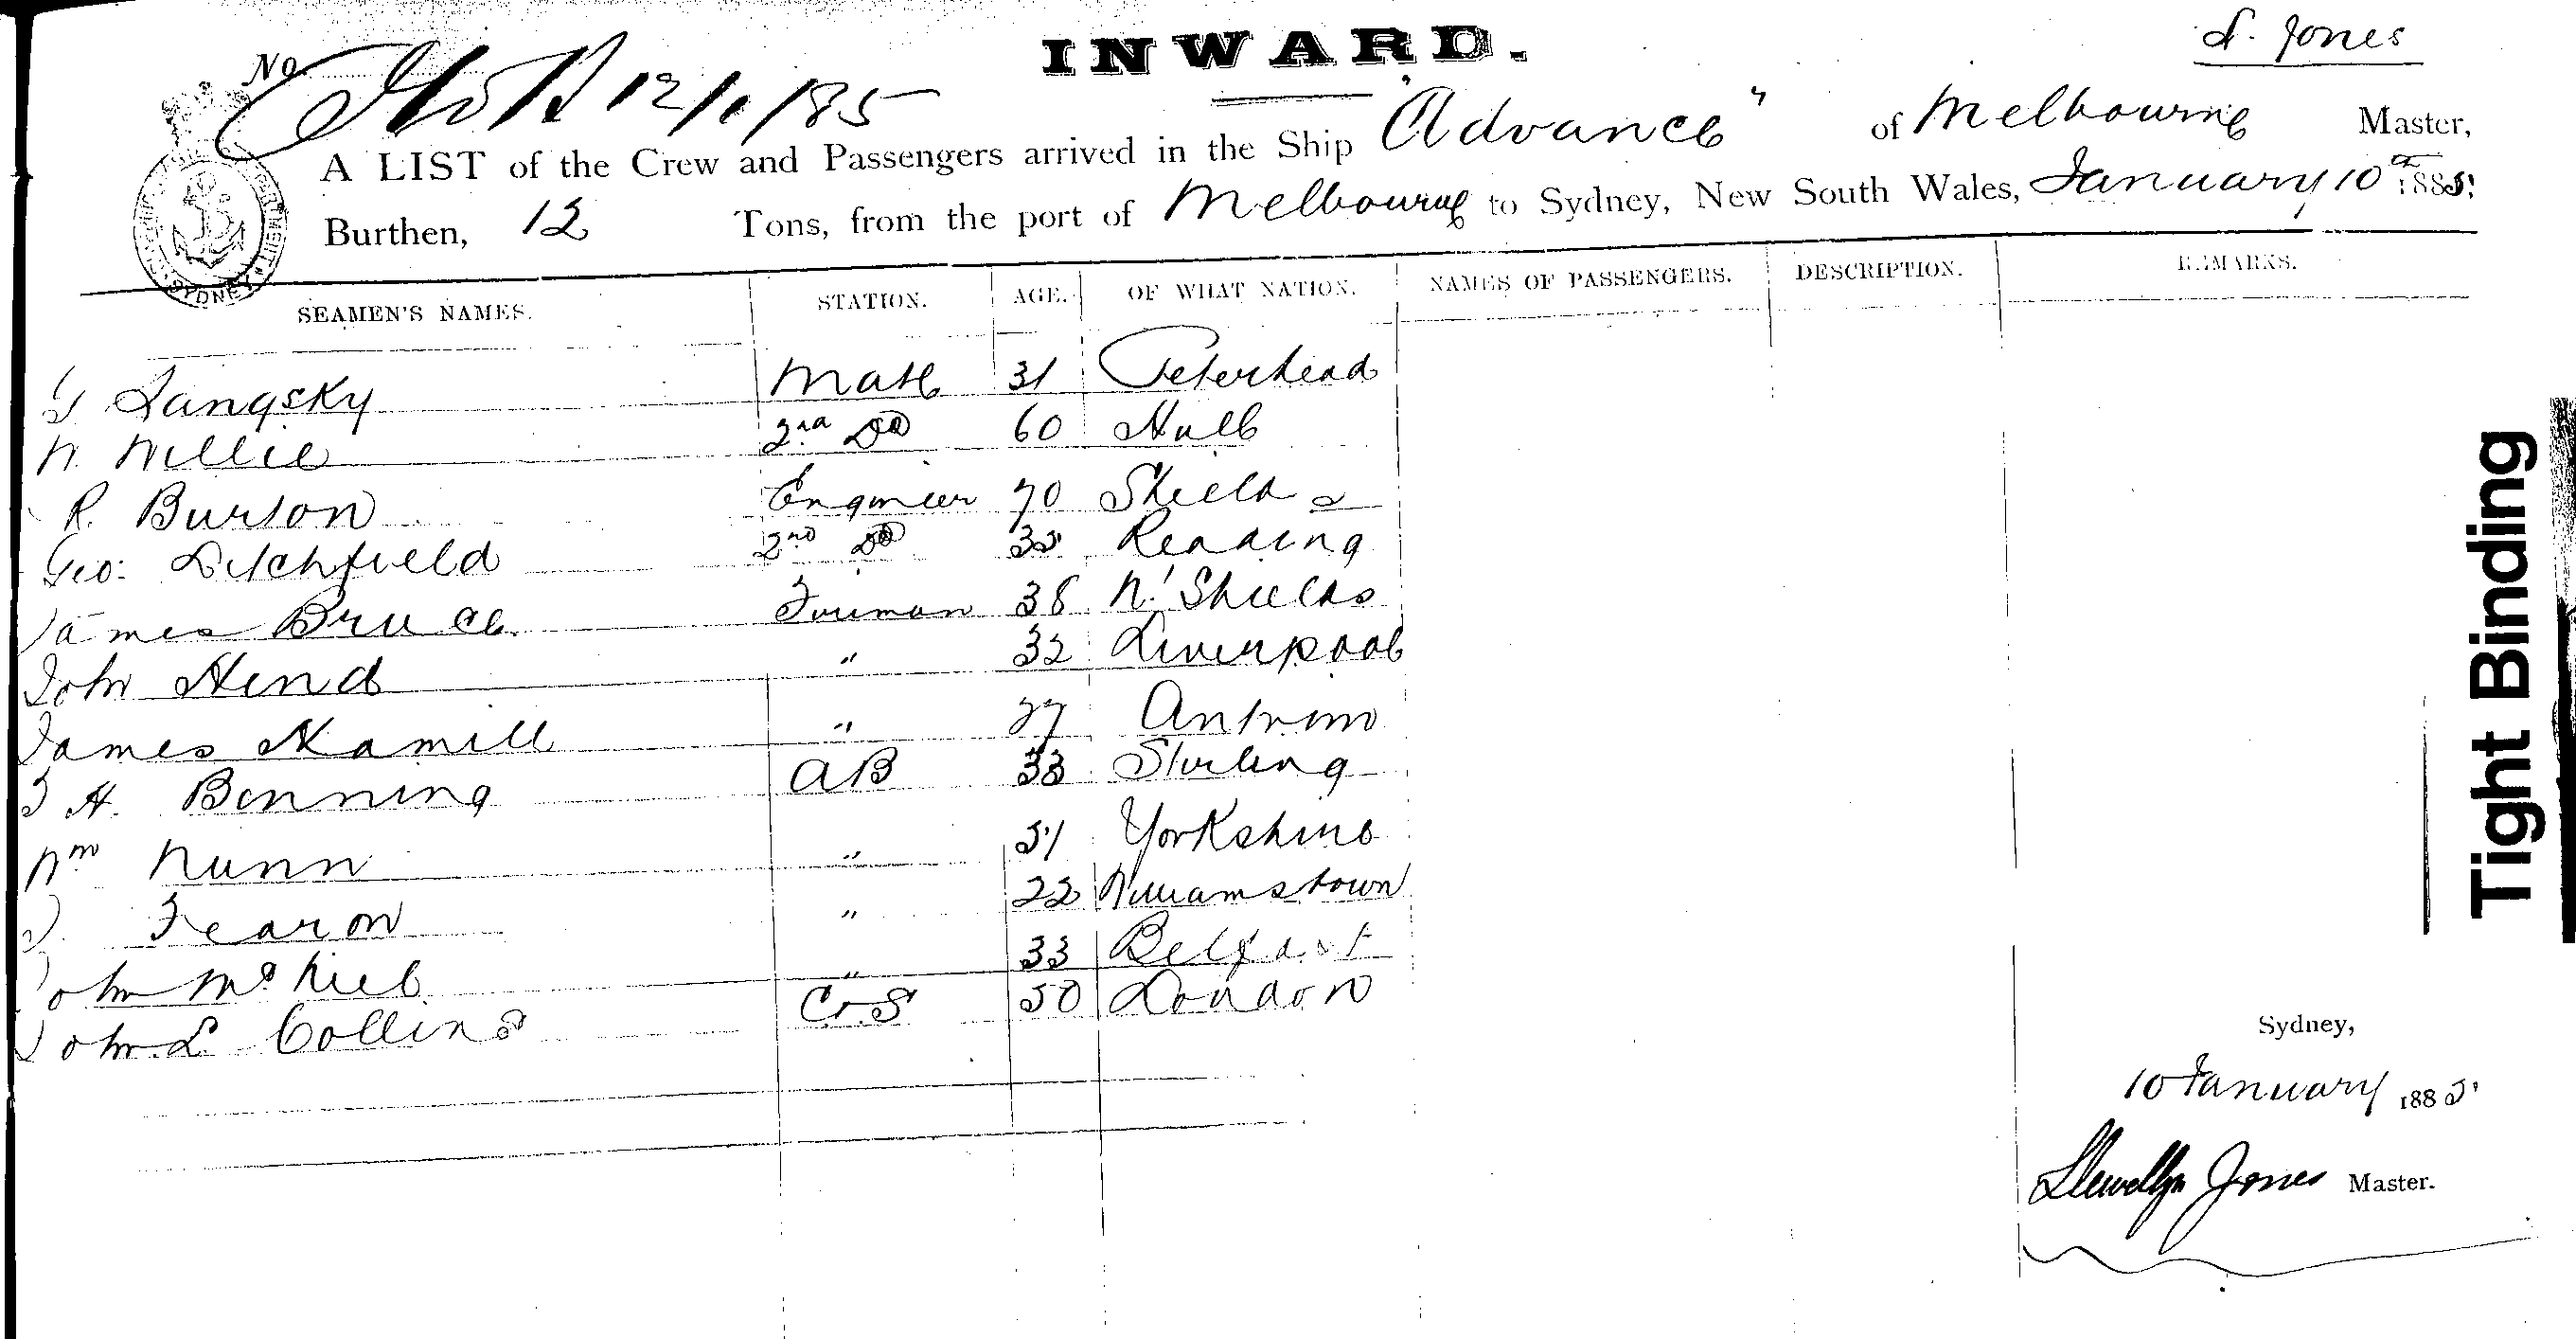 INWARD.
L. Jones
No 12/1/85
A LIST of the Crew and Passengers arrived in the Ship "Advance" of Melbourne Master,
Burthen, 12 Tons, from the port of Melbourne to Sydney, New South Wales, January 10th 1885
SEAMEN'S NAMES. STATION. AGE. OF WHAT NATION. NAMES OF PASSENGERS. DESCRIPTION. REMARKS.
G Langsky Mate 31 Peterhead
W. Willie 2nd Do 60 Hull
R. Burton Engineer 70 Shields
Geo: Litchfield 2nd Do 35 Reading
James Bruce Fireman 38 N. Shields
John Hind " 32 Liverpool
James Hamill " 27 Antrim
J H. Binning AB 33 Stirling
Wm Nunn " 51 Yorkshire
J. Fearon " 22 Williamstown
John McNeil " 33 Belfast
John L Collins C&S 50 London
Tight Binding
Sydney,
10 January 1885
Llewellyn Jones Master.
SYDNEY